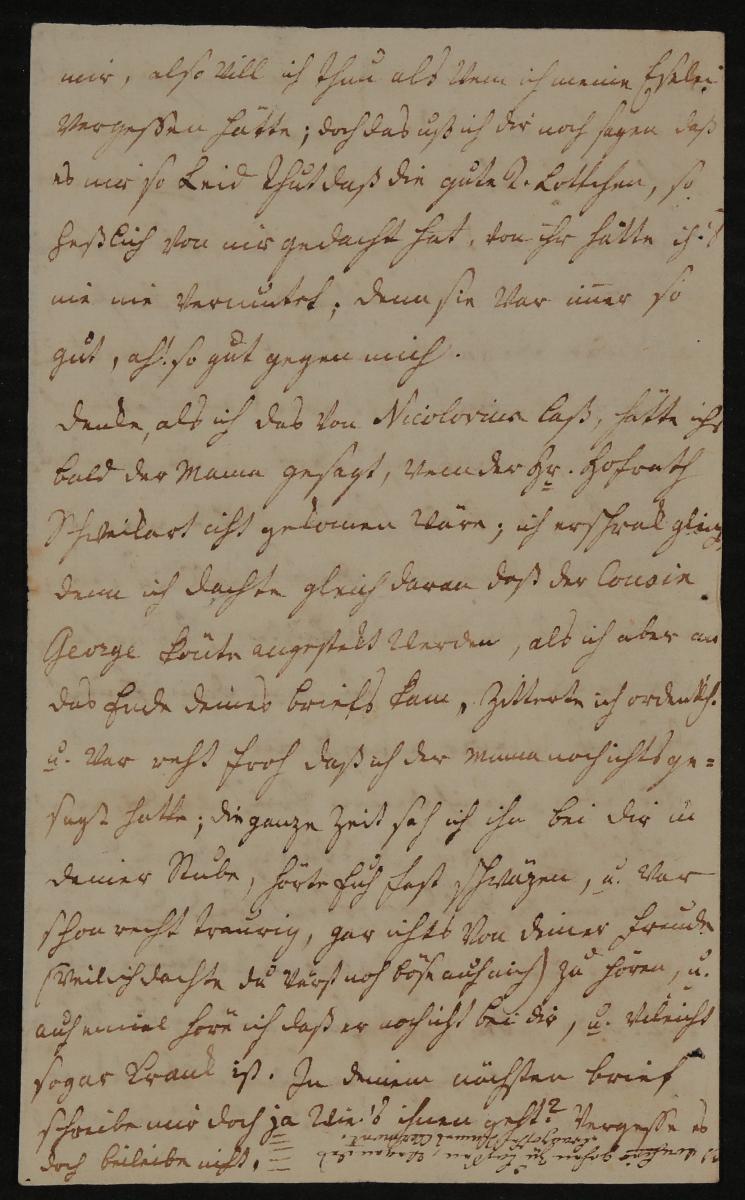 mir, also will ich thun als wenn ich meine Eselei
vergessen hätte; doch das muß ich dir noch sagen daß
es mir so Leid thut daß die gute T. Lottchen, so
heßlich von mir gedacht hat, von ihr hätte ich's
nie nie vermutet; denn sie war immer so
gut, ach! so gut gegen mich.
denke, als ich das von Nicolovius laß, hätte ichs
bald der Mama gesagt, wenn der Hr. Hofrath
Schweikart nicht gekomen wäre; ich erschrak gleich
denn ich dachte gleich daran daß der Cousin
George könte angestelt werden, als ich aber an
das Ende deines briefs kam, zitterte ich ordentlich.
u. war recht froh daß ich der Mama noch nichts ge=
sagt hatte; die ganze Zeit sah ich ihn bei dir in
deiner Stube, hörte Euch fast schwäzen, u. war
schon recht traurig, gar nichts von deiner Freude
(weil ich dachte du wärst noch böse auf mich) zu hören, u.
auf einmal höre ich daß er noch nicht bei dir, u. vieleicht
sogar krank ist. In deinem nächsten brief
schreibe mir doch ja wie's ihnen geht? Vergesse es
doch beileibe nicht.